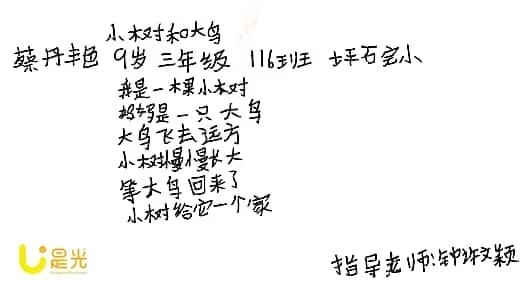 小树和大鸟
蔡丹艳 9岁 三年级 116班 坪石完小
我是一棵小树
妈妈是一只大鸟
大鸟飞去远方
小树慢慢长大
等大鸟回来了
小树给它一个家
是光
指导老师:钟玫颖